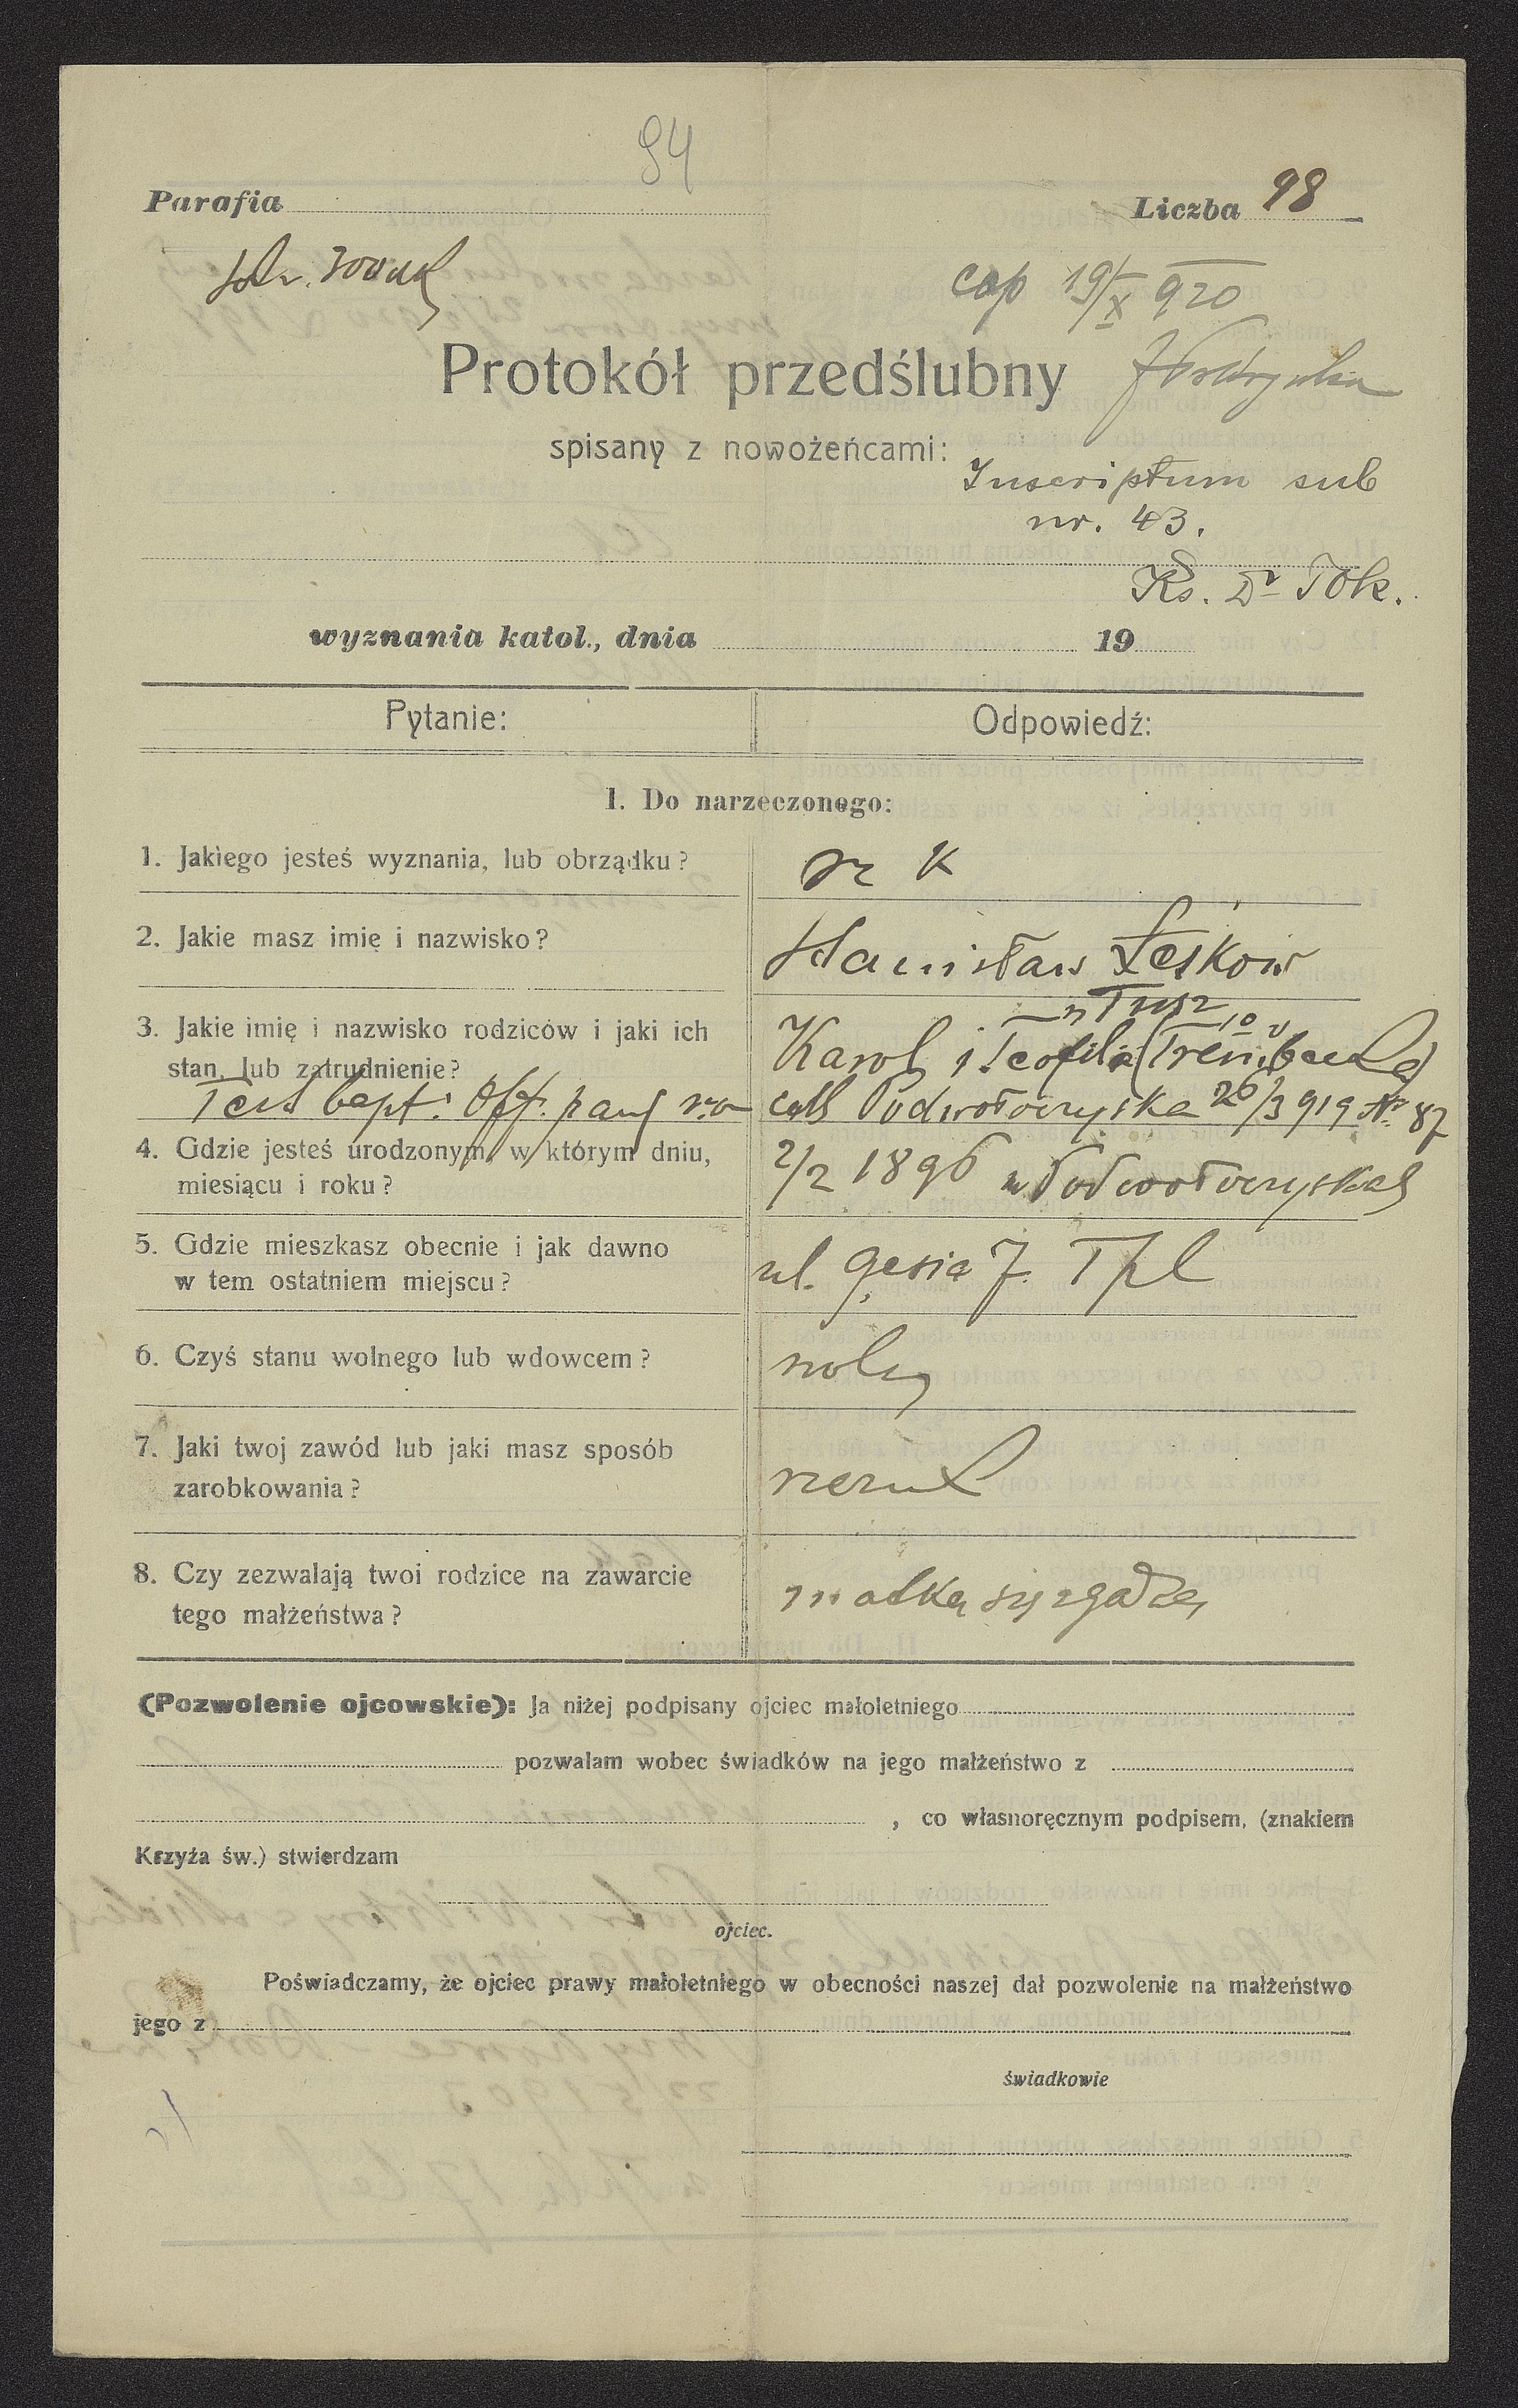 94
Parafia
Liczba 98
cop 19/X 920
Protokół przedślubny
spisany z nowożeńcami:
Inscriptum sub
nr. 43.
Ks. Dr Tok.
wyznania katol., dnia 19
Pytanie: Odpowiedź:
1. Do narzeczonego:
1. Jakiego jesteś wyznania, lub obrządku? rz K
2. Jakie masz imię i nazwisko? Stanisław Łeśków
3. Jakie imię i nazwisko rodziców i jaki ich
stan, lub zatrudnienie? Karol i Teofila
Test bapt. Off. par rom cath Podwołoczyska 26/3 919 Nr 87
4. Gdzie jesteś urodzonym, w którym dniu,
miesiącu i roku? 2/2 1896 w Podwołoczyskach
5. Gdzie mieszkasz obecnie i jak dawno
w tem ostatniem miejscu? ul. Gęsia 7. Tpl
6. Czyś stanu wolnego lub wdowcem? wolny
7. Jaki twoj zawód lub jaki masz sposób
zarobkowania?
8. Czy zezwalają twoi rodzice na zawarcie
tego małżeństwa? matka się zgadza
(Pozwolenie ojcowskie): Ja niżej podpisany ojciec małoletniego
pozwalam wobec świadków na jego małżeństwo z
, co własnoręcznym podpisem, (znakiem
Krzyża św.) stwierdzam
ojciec.
Poświadczamy, że ojciec prawy małoletniego w obecności naszej dał pozwolenie na małżeństwo
jego z
świadkowie